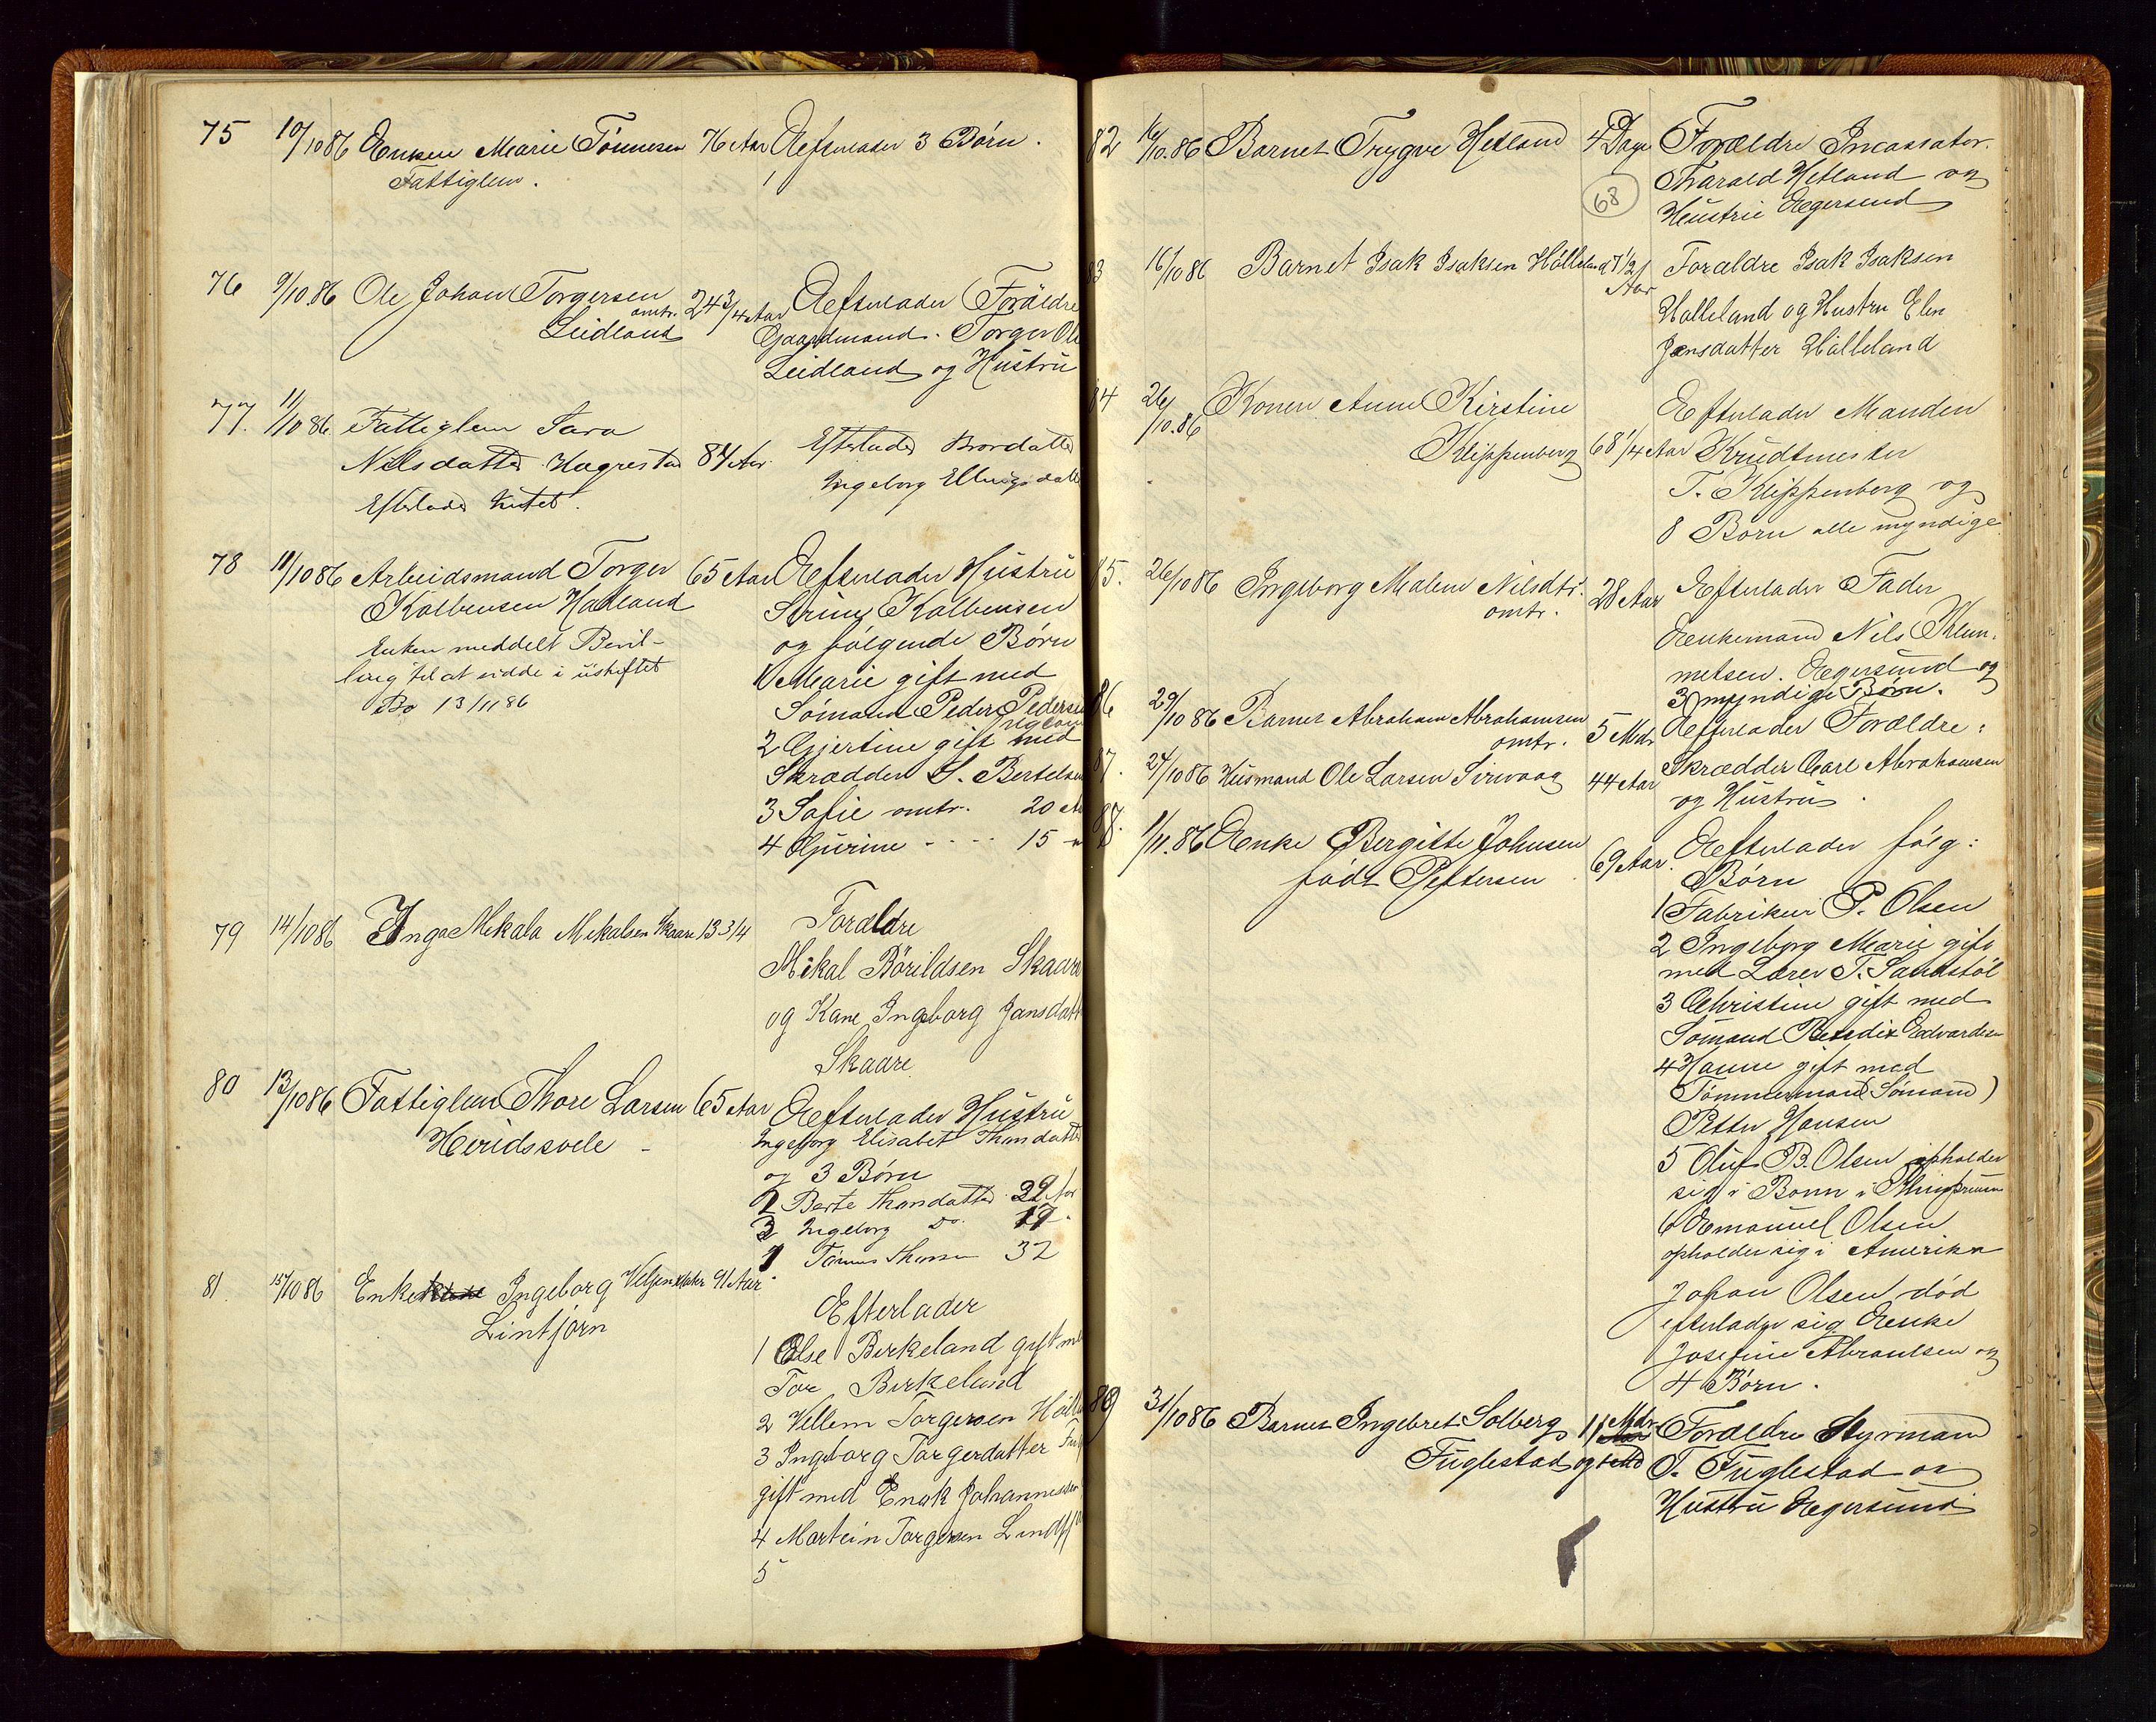 75 10/10 86 Enken Marie Tønnesen 76 Aar Efterlader 3 Børn.
Fattiglem.
76 9/10 86 Ole Johan Torgersen 24 3/4 Aar Efterlader Forældre
omtr.
Leidland Gaardmand. Torger Ols
Leidland og Hustru
77. 11/10 86. Fattiglem Sara
Nilsdatter Hagrestad 84 Aar. Efterlader Brordatter
Ingeborg Ellingsdatter
Efterlader Intet.
78 11/10 86 Arbeidsmand Torger 65 Aar Efterlader Hustru
Kolbensen Hadland Kolbensen
og følgende Børn
Enken meddelt Bevil-
ling til at sidde i uskiftet
Bo 13/11 86
1 Marie gift med
Sømand Peder Pedersen
2 Gjertine gift med
Skrædder S. Bertelsen
3 Sofie omtr. 20 Aar
4 Gurine - - - - 15 -
79 14/10 86 Inga Mikala Mikalsen Skaare 13 3/4 Forældre
Mikal Bårildsen Skaare
og Kone Ingeborg Jansdatt
Skaare
80 13/10 86 Fattiglem Thore Larsen 65 Aar Efterlader Hustru
Heridssvele - Ingeborg Elisabet Thorsdatter
og 3 Børn
2 Berte Thorsdatter 29 Aar
3 Ingeborg Do. 17.
1 Thorsen 32
81. 15/10 86 Enke Ingeborg 91 Aar.
Lintjørn
Efterlader
1 Else Birkeland gift me
Tor Birkeland
2 Vellem Torgersen
3 Ingeborg Torgerdatter
gift med Enok Johannessen
4 Martein Torgersen
5
82 16/10.86 Barnet Trygve Hetland 4 Dage Forældre Incassator.
68 Tharald Hetland og
Hustrie Egersund
83 16/10 86 Barnet Isak Isaksen Hålleland 7 1/2 Aar Forældre Isak Isaksen
Hålleland og Hustru Elen
Jensdatter Hålleland
84 26/10.86 Konen Anne Kirstine
Klippenberg 68 1/4 Aar Efterlader Manden
Krudtmester
T. Klippenberg og
8 Børn alle myndige
85. 26/10 86 Ingeborg Malene Nilsdtr. 28 Aar Efterlader Fader
omtr.
Enkemand Nils Klem-
metsen. Egersund og
3 myndige Børn.
86 29/10 86 Barnet Abraham Abrahamsen 5 Mdr Efterlader Forældre:
omtr.
Skrædder Carl Abrahamsen
og Hustru.
87. 27/10 86 Husmand Ole Larsen Sirevaag 44 Aar
88. 1/11.86 Enke Bergitte Johnsen 69 Aar. Efterlader følg:
født Pettersen Børn
1 Fabrikeur P. Olsen
2 Ingeborg Marie gift
med Lærer T. Sandstøl
3 Christine gift med
Sømand Bendix Edvardsen
4 Hanne gift med
Tømmermand (Sømand)
Petter Hansen
5 Oluf B. Olsen opholder
sig i Bonn i Rhinpreussen
6 Emanuel Olsen
opholder sig i Amerika
Johan Olsen død
efterlader sig Enke
Josefine Abrahamsen og
4 Børn.
89 31/10 86 Barnet Ingebret Solberg 11 Mdr Forældre Styrmand
Fuglestad T. Fuglestad og
Hustru Egersund